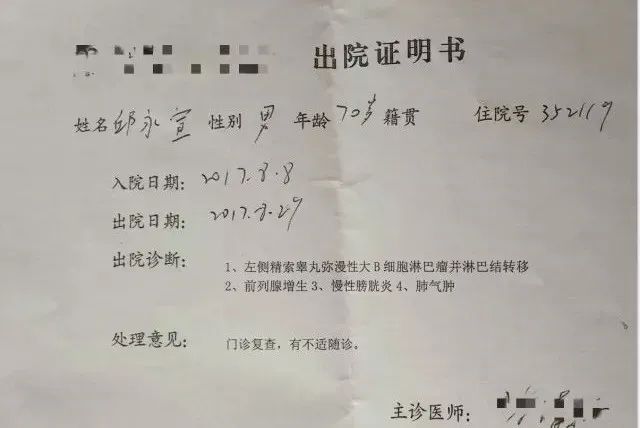 出院证明书
姓名 邱永宣 性别 男 年龄 70岁 籍贯 住院号 352119
入院日期: 2017.8.8
出院日期: 2017.8.29
出院诊断: 1、左侧精索睾丸弥漫性大B细胞淋巴瘤并淋巴结转移
2、前列腺增生 3、慢性膀胱炎 4、肺气肿
处理意见: 门诊复查，有不适随诊。
主诊医师: